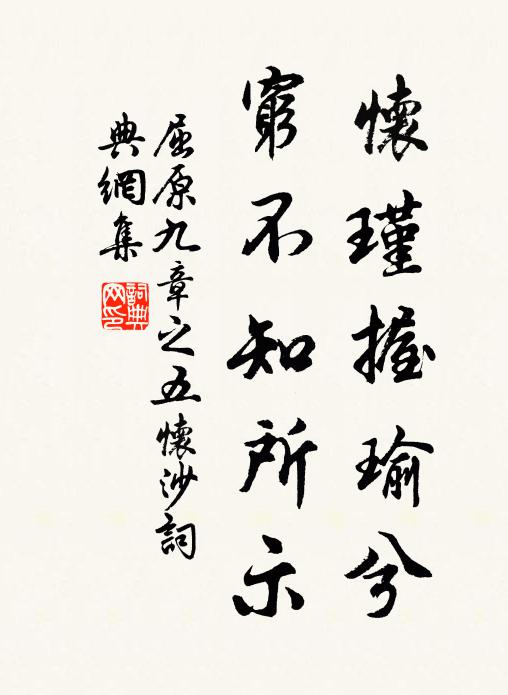 懷瑾握瑜兮
窮不知所示
屈原九章之五懷沙詞
典網集
詞典
网印